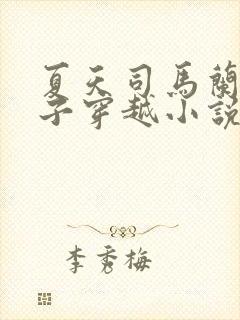 夏天司馬蘭
子穿越小說
李秀梅